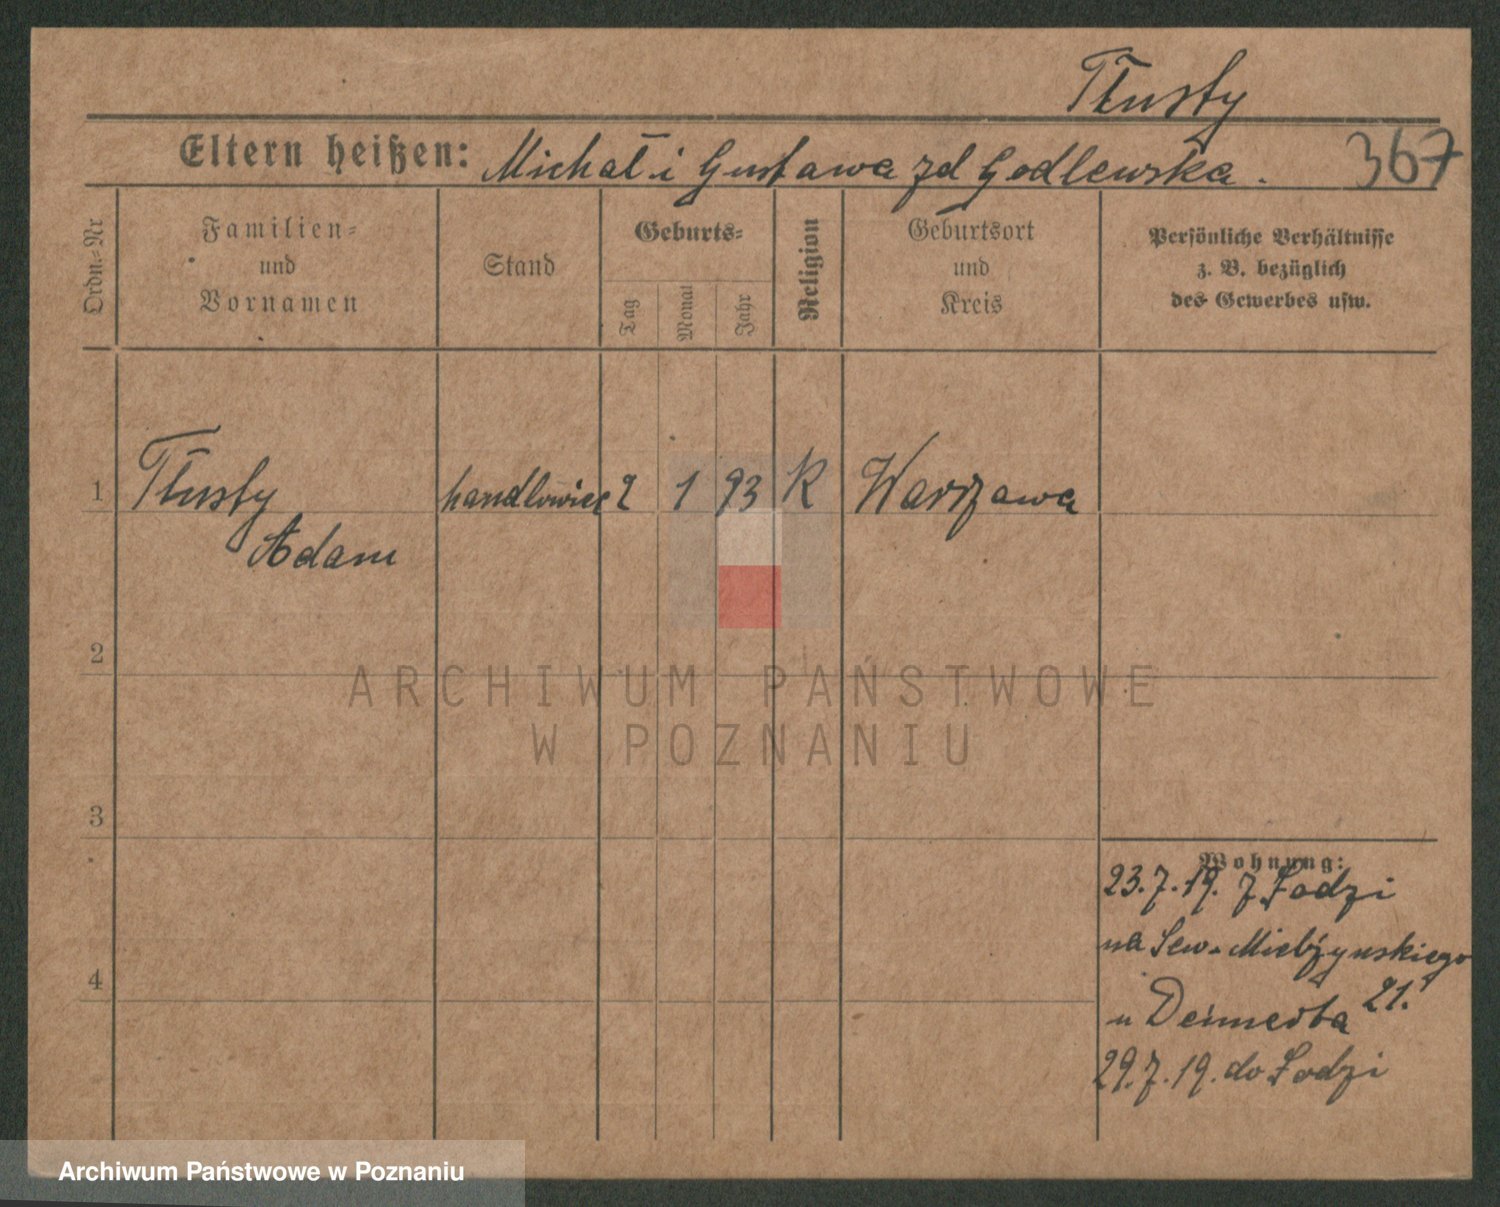 Tłusty
Eltern heißen: Michał i Gustawa zd Godlewska.
367
Ordn.-Nr
Familien-
und
Vornamen
Stand
Geburts-
Tag
Monat
Jahr
Religion
Geburtsort
und
Kreis
Persönliche Verhältnisse
z. B. bezüglich
des Gewerbes usw.
1 Tłusty handlowiec 2 1 93 K Warszawa
Adam
2
3
4
Wohnung:
23.7.19. z Łodzi
na Sew. Mielżynskiego
21.
u
29.7.19. do Łodzi
ARCHIWUM PAŃSTWOWE
W POZNANIU
Archiwum Państwowe w Poznaniu